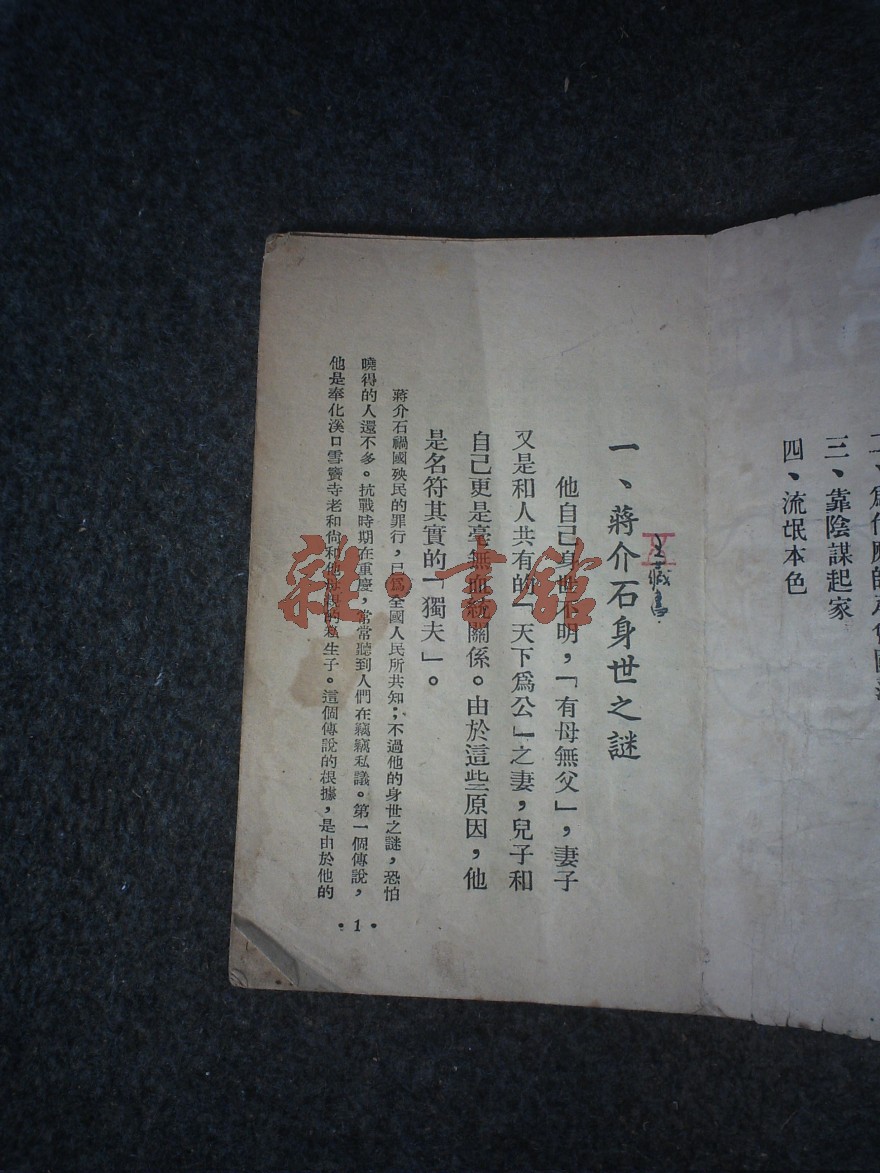 三、靠陰謀起家
四、流氓本色
一、蔣介石身世之謎
他自己身世不明，「有母無父」，妻子
又是和人共有的「天下爲公」之妻，兒子和
自己更是毫無血統關係。由於這些原因，他
是名符其實的「獨夫」。
蔣介石禍國殃民的罪行，已爲全國人民所共知；不過他的身世之謎，恐怕
曉得的人還不多。抗戰時期在重慶，常常聽到人們在竊竊私議。第一個傳說，
他是奉化溪口雪竇寺老和尚和他母親的私生子。這個傳說的根據，是由於他的
•1•
雜·書館